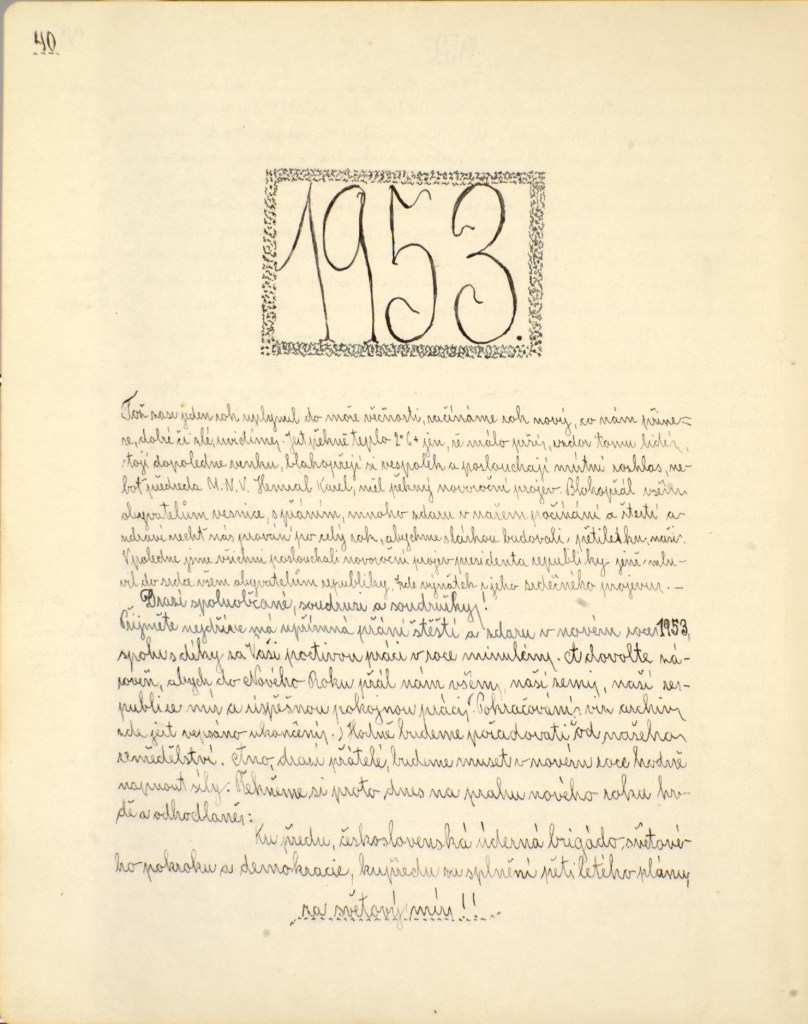 40
1953.
Tož zase jeden rok uplynul do moře věčnosti, začínáme rok nový, co nám přine-
se, dobré či zlé, uvidíme. Jest pěkně teplo 2°C+ jen, že málo prší, vzdor tomu lidé
stojí dopoledne venku, blahopřejí si vespolek a poslouchají místní rozhlas, ne-
boť předseda M.N.V. Karel, měl pěkný novoroční projev. Blahopřál všem
obyvatelům vesnice, s přáním, mnoho zdaru v našem počínání a štestí a
zdraví nechť nás provází po celý rok, abychme s láskou budovali, pětiletku naši.
V poledne jsme všichni poslouchali novoroční projev presidenta republiky jenž mlu-
vil do srdce všem obyvatelům republiky, zde výnátek z jeho srdečného projevu. -
Drazí spoluobčané, soudruzi a soudružky!
Přijměte nejdříve má upřímná přání štěstí a zdaru v novém roce 1953,
spolu s díky za Vaši poctivou práci v roce minulém. A dovolte zá-
roveň, abych do Nového Roku přál nám všem, naší zemi, naší re-
publice mír a úspěšnou pokojnou práci. (Pokračování viz archiv
zde jest vepsáno ukončení.) Hodně budeme požadovati od našeho
zemědělství. Ano, drazí přátelé, budeme muset v novém roce hodně
napnout síly. Řekněme si proto dnes na prahu nového roku hr-
dě a odhodlaně:
Ku předu, československá úderná brigádo světové-
ho pokroku a demokracie, kupředu za splnění pětiletého plánu,
za světový mír!!